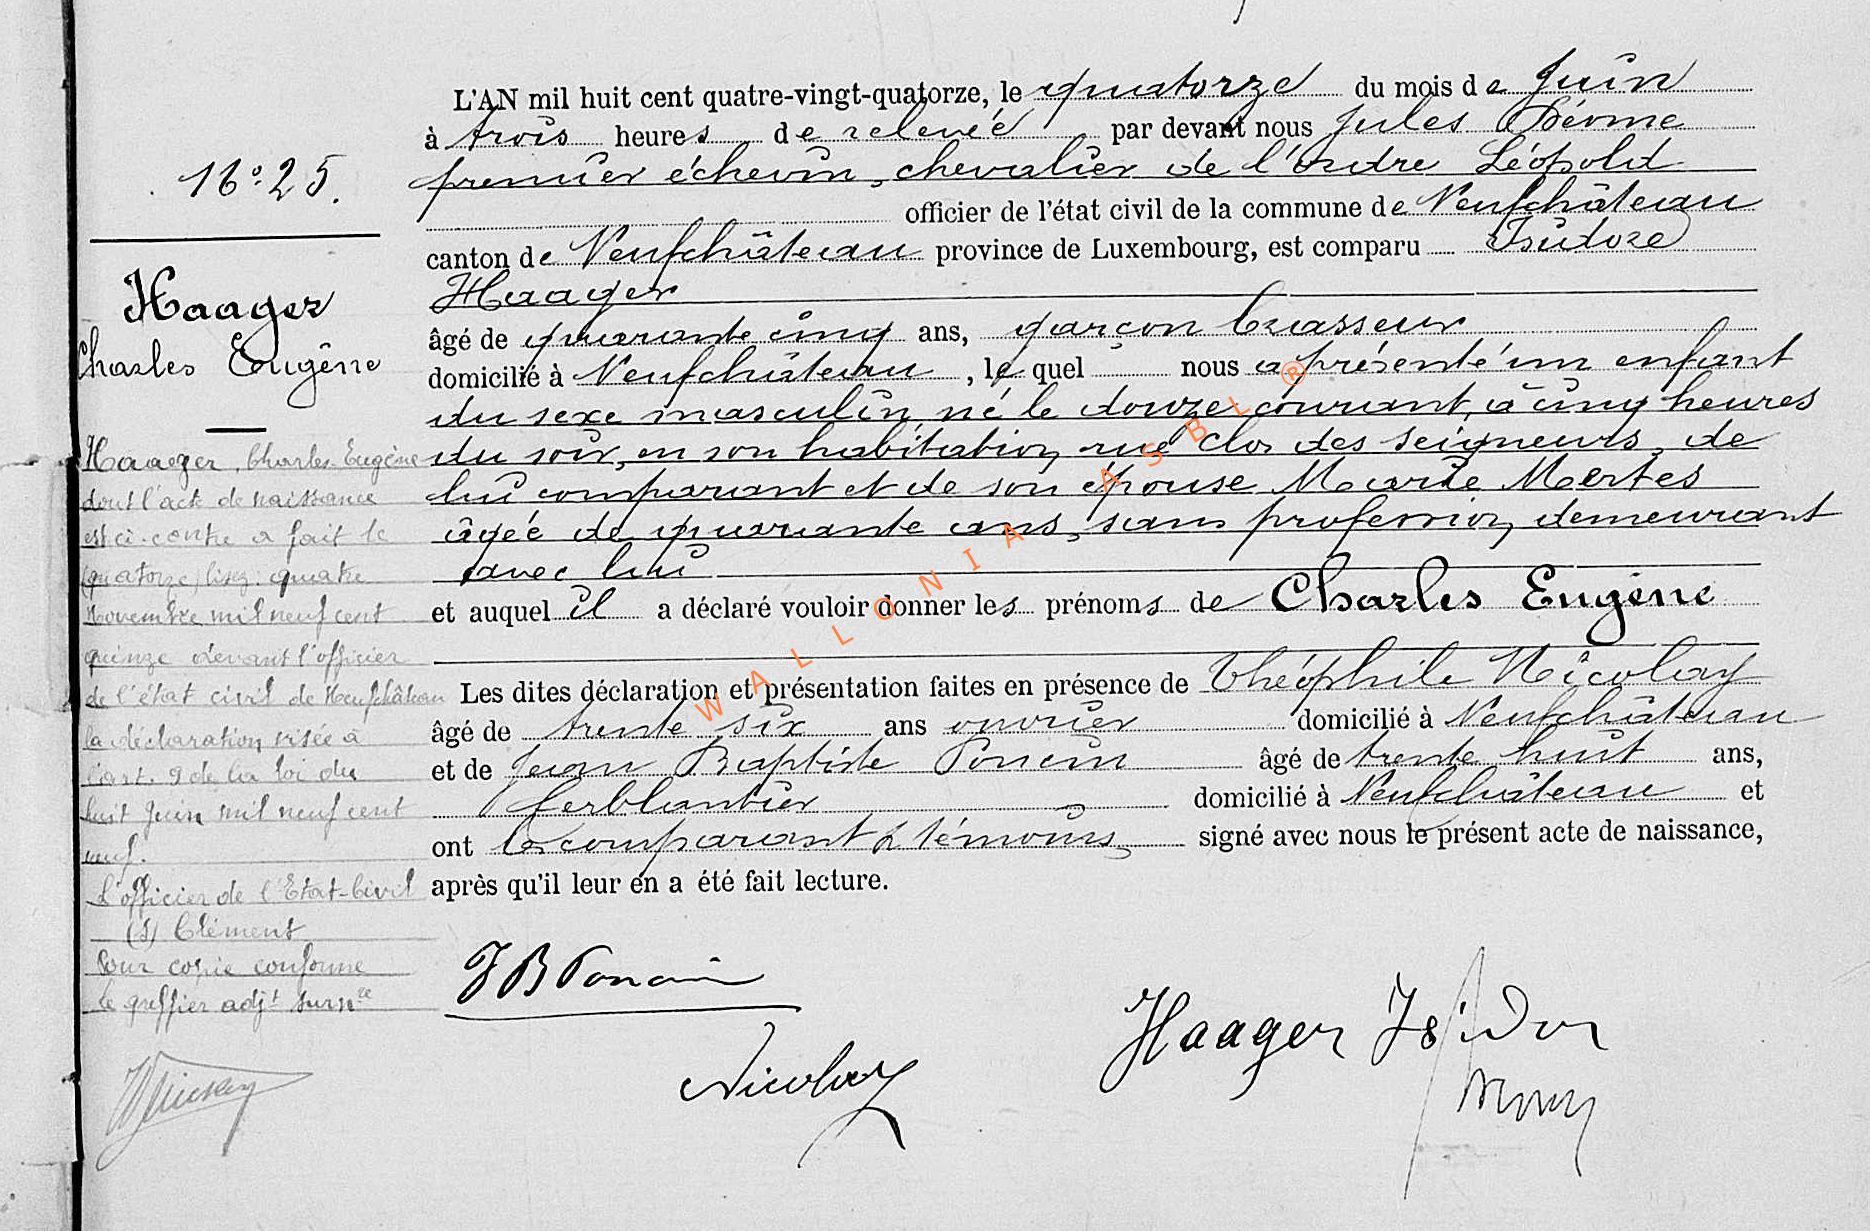 L'AN mil huit cent quatre-vingt-quatorze, le quatorze du mois de Juin
à trois heures de relevée par devant nous Jules
premier échevin, chevalier de l'ordre Léopold
officier de l'état civil de la commune de Neufchâteau
canton de Neufchâteau province de Luxembourg, est comparu Isidore
Haager
âgé de quarante cinq ans, garçon brasseur
domicilié à Neufchâteau, lequel nous a présenté un enfant
du sexe masculin, né le douze courant, à cinq heures
du soir, en son habitation, rue Clos des Seigneurs, de
lui comparant et de son épouse Marie Mertes
âgée de quarante ans, sans profession, demeurant
avec lui
et auquel il a déclaré vouloir donner les prénoms de Charles Eugène
Les dites déclaration et présentation faites en présence de Théophile Nicolay
âgé de trente six ans ouvrier domicilié à Neufchâteau
et de Jean Baptiste Poncin âgé de trente huit ans,
ferblantier domicilié à Neufchâteau et
ont les comparant & témoins signé avec nous le présent acte de naissance,
après qu'il leur en a été fait lecture.
N°25.
Haager
Charles Eugène
Haager, Charles Eugène
dont l'acte de naissance
est ci-contre a fait le
(quatorze) lisez: quatre
Novembre mil neuf cent
quinze devant l'officier
de l'état civil de Neufchâteau
la déclaration visée à
l'art. 9 de la loi du
huit Juin mil neuf cent
neuf.
L'officier de l'Etat-Civil
(s) Clément
Pour copie conforme
Le greffier adjt surnre
J B Poncin
Nicolay
Haager Isidor
WALLONIA ASBL ®